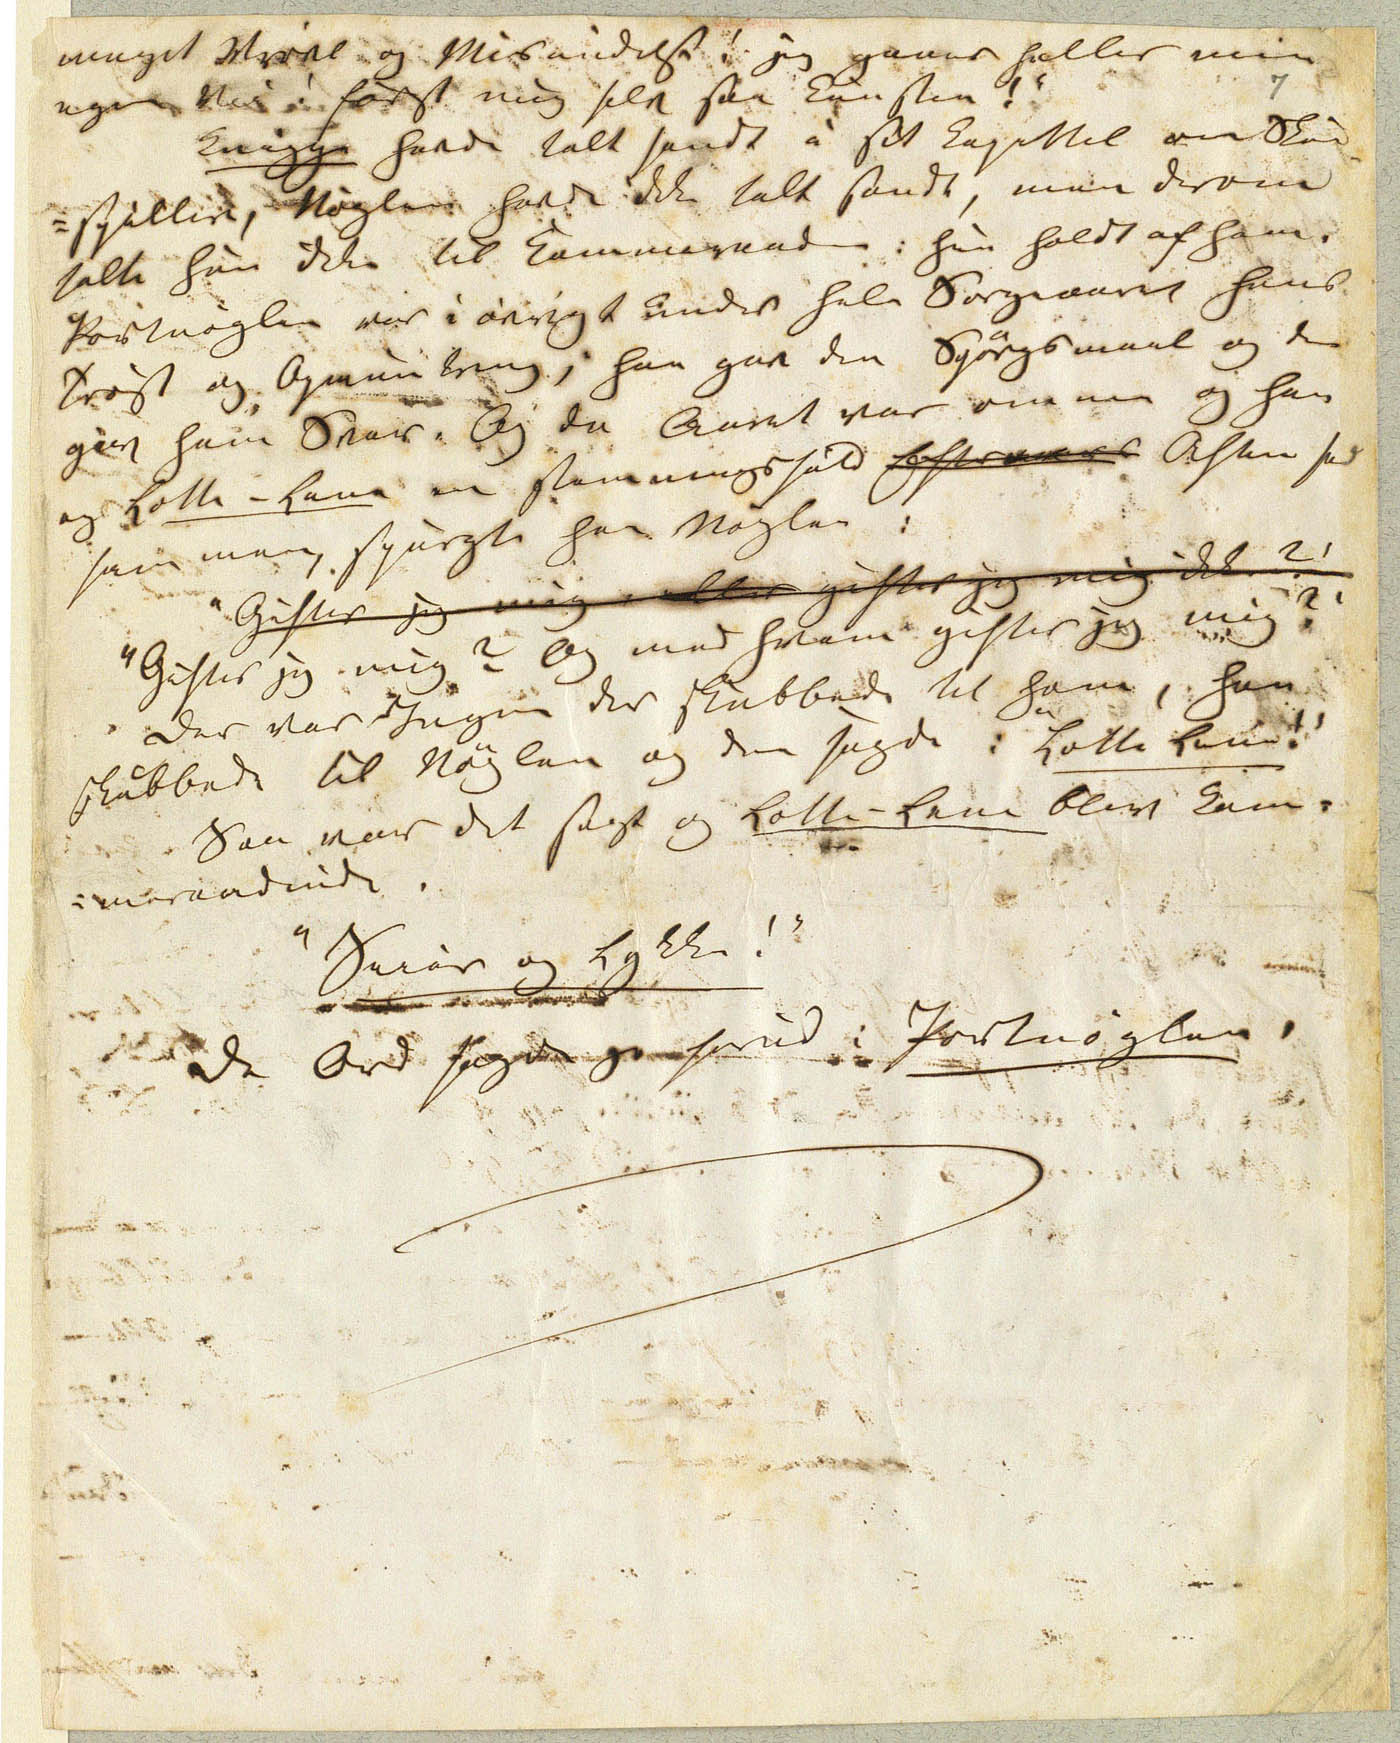 meget Vrøvl og Misundelse! jeg gaaer heller min
7
egen Vei! først mig selv saa Kunsten!"
Knigge havde talt sandt i sit Capittel om Skue-
=spillere, Nøglen havde ikke talt sandt, men derom
talte hun ikke til Kammerraaden: hun holdt af ham.
Portnøglen var i øvrigt under hele Sørgeaaret hans
Trøst og Opmuntring; han gav den Spørgsmaal og den
gav ham Svar. Og da Aaret var omme og han
og Lotte-Lene en stemningsfuld Aften sad
sammen, spurgte han Nøglen:
"Gifter jeg mig eller gifter jeg mig ikke?"
"Gifter jeg mig? Og med hvem gifter jeg mig?"
Der var Ingen der skubbede til ham, han
skubbede til Nøglen og den sagde: "Lotte Lene!"
Saa var det sagt og Lotte-Lene blev Kam-
=merraadinde.
"Seier og Lykke!"
De Ord sagde jo forud: Portnøglen.